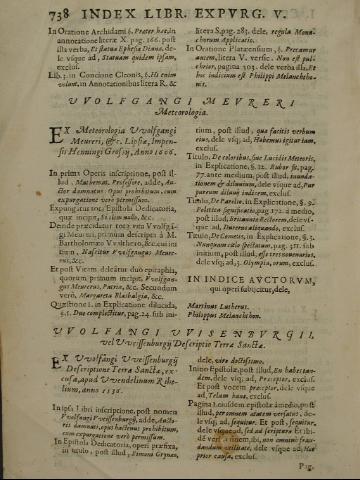 738 INDEX LIBR. EXPVRG. V.
In Oratione Archidami §. Præter hæc, in
annotatione literæ X pag. 166. post
illa verba, Et statua Ephesia Dianæ, de-
le vsque ad, Statuam quidem ipsam,
exclus.
Lib. 3. in Concione Cleonis, §. Hi enim
volunt, in Annotationibus litera R. &
litera S. pag. 283. dele, regula Mona-
chorum Applicatio.
In Oratione Platæensium, §. Precamur
autem, litera V. versic. Non est pul-
chrior, pagina 303. dele verba illa, Et
huc indicium est Philippi Melanchtho-
nis.
VVOLFGANGI MEVRERI
Meteorologia.
EX Meteorologia Vvolfgangi
Meureri, &c. Lipsiæ, Impen-
sis Henningi Grosij, Anno 1606.
In prima Operis inscriptione, post il-
lud, Mathemat. Professore, adde, Au-
ctor damnatus. Opus prohibitum, cum
expurgatione verò permissum.
Expungatur tota Epistola Dedicatoria,
quæ incipit, Si illem nullo, &c.
Deinde præcidatur tota vita Vvolfgan-
gi Meureri, primum descripta à M.
Bartholomæo Vvalthero, &c. cui ini-
tium, Nascitur Vvolfgangus Meure-
rus, &c.
Et post Vitam deleantur duo epitaphia,
quorum primum incipit, Vvolfgan-
gus Meurerus, Patria, &c. Secundum
verò, Margareta Blasbalgia, &c.
Quæstione 1. in Explicatione dilucida,
§. 1. Duæ complectitur, pag. 24. sub ini-
tium, post illud, qua facitis verbum
eius, dele vsq; ad, Habemus igitur tam,
exclus.
Titulo, De coloribus, siue Lucidis Meteoris,
in Explicatione, §. 12. Rubor sic, pag.
77. ante medium, post illud, inunda-
tionem & diluuium, dele vsque ad, Pur
pureum diluit inderem, exclus.
Titulo, De Parelio, in Explicatione, §. 9.
Politica significatio, pag. 172. à medio,
post illud, Britannia Rectorem, dele vs-
que ad, Durerus aliquando, exclus.
Titulo, De Cometis, in Explicatione, §.
Nunquam cœlo spectatum, pag. 371. sub
initium, post illud, esse terrouenientes,
dele vsq; ad, 3. Olympia, orum, exclus.
IN INDICE AVCTORVM,
qui operi subijcitur, dele,
Martinus Lutherus.
Philippus Melanchthon.
VVOLFANGI VVISENBVRGII,
vel Vveissenburgij Descriptio Terræ Sanctæ.
EX Vvolfangi Vveissenburgij
Descriptione Terræ Sanctæ, ex-
cusa, apud Vvendelinum Rihe-
lium, anno 1536.
In ipsa Libri inscriptione, post nomen
Vvolfangi Vveissenburgij, adde, Aucto-
ris damnati, opus hactenus prohibitum,
cum expurgatione verò permissum.
In Epistola Dedicatoria, operi præfixa,
in titulo, post illud, Simoni Grynæo,
dele, viro doctissimo.
Initio Epistolæ, post illud, En habes tan-
dem, dele vsq; ad, Præceptor, exclus.
Et post vocem præceptor, dele vsque
ad, Telam hanc, exclus.
Pagina 1. eiusdem epistolæ à medio, post
illud, per omnem ætatem versatus, de-
le vsq; ad, sequitur. Et post, sequitur,
dele vsque ad, sed ad scriptura
Et ibi-
dem vers. finem, ibi, non omnino frau-
dandum vtilitate, dele vsque ad, Hæc
prior causa, exclus.
Pag.